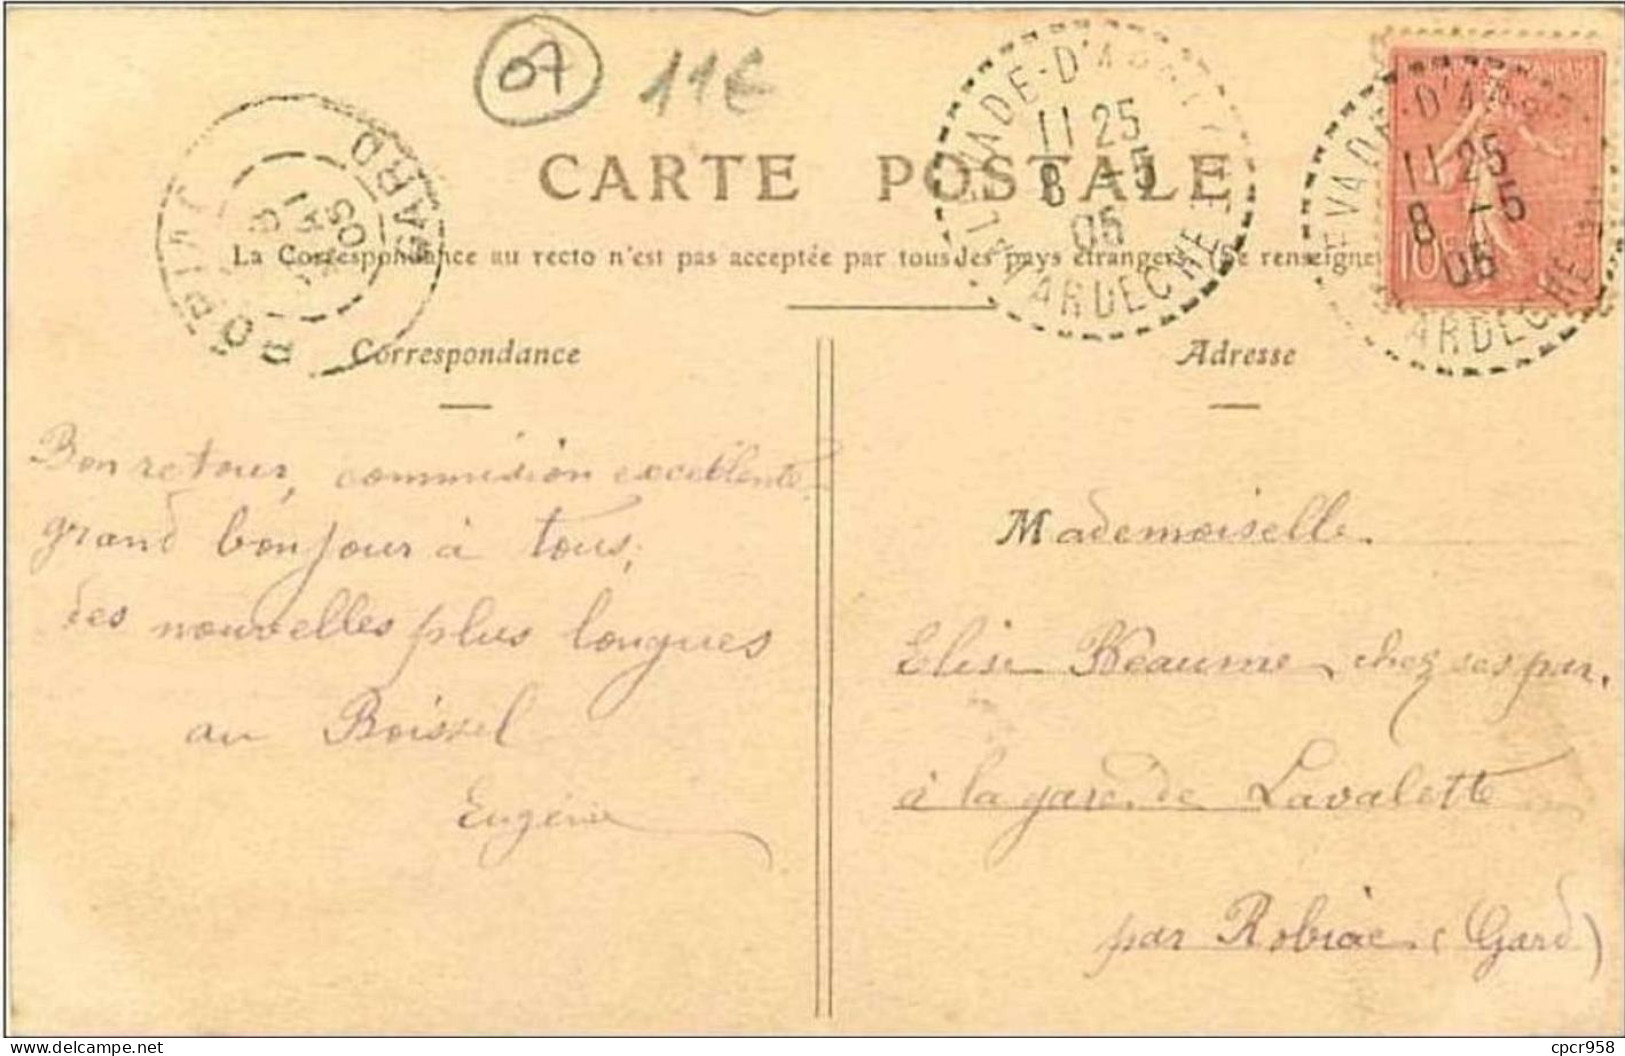 07 11€
CARTE POSTALE
La Correspondance au recto n'est pas acceptée par tous les pays étrangers (Se renseigne
ROBIAC GARD
8 05
LEVADE-D'ARD
ARDECHE
11 25
8 -5
05
EVADE-D'ARD
ARDECHE
11 25
8 -5
05
10
Correspondance
Bon retour, commission excellente
grand bonjour à tous,
des nouvelles plus longues
au Boissel
Eugénie
Adresse
Mademoiselle
Elise Réaume chez ses par.
à la gare de Lavalette
par Robiac (Gard)
cpcr958